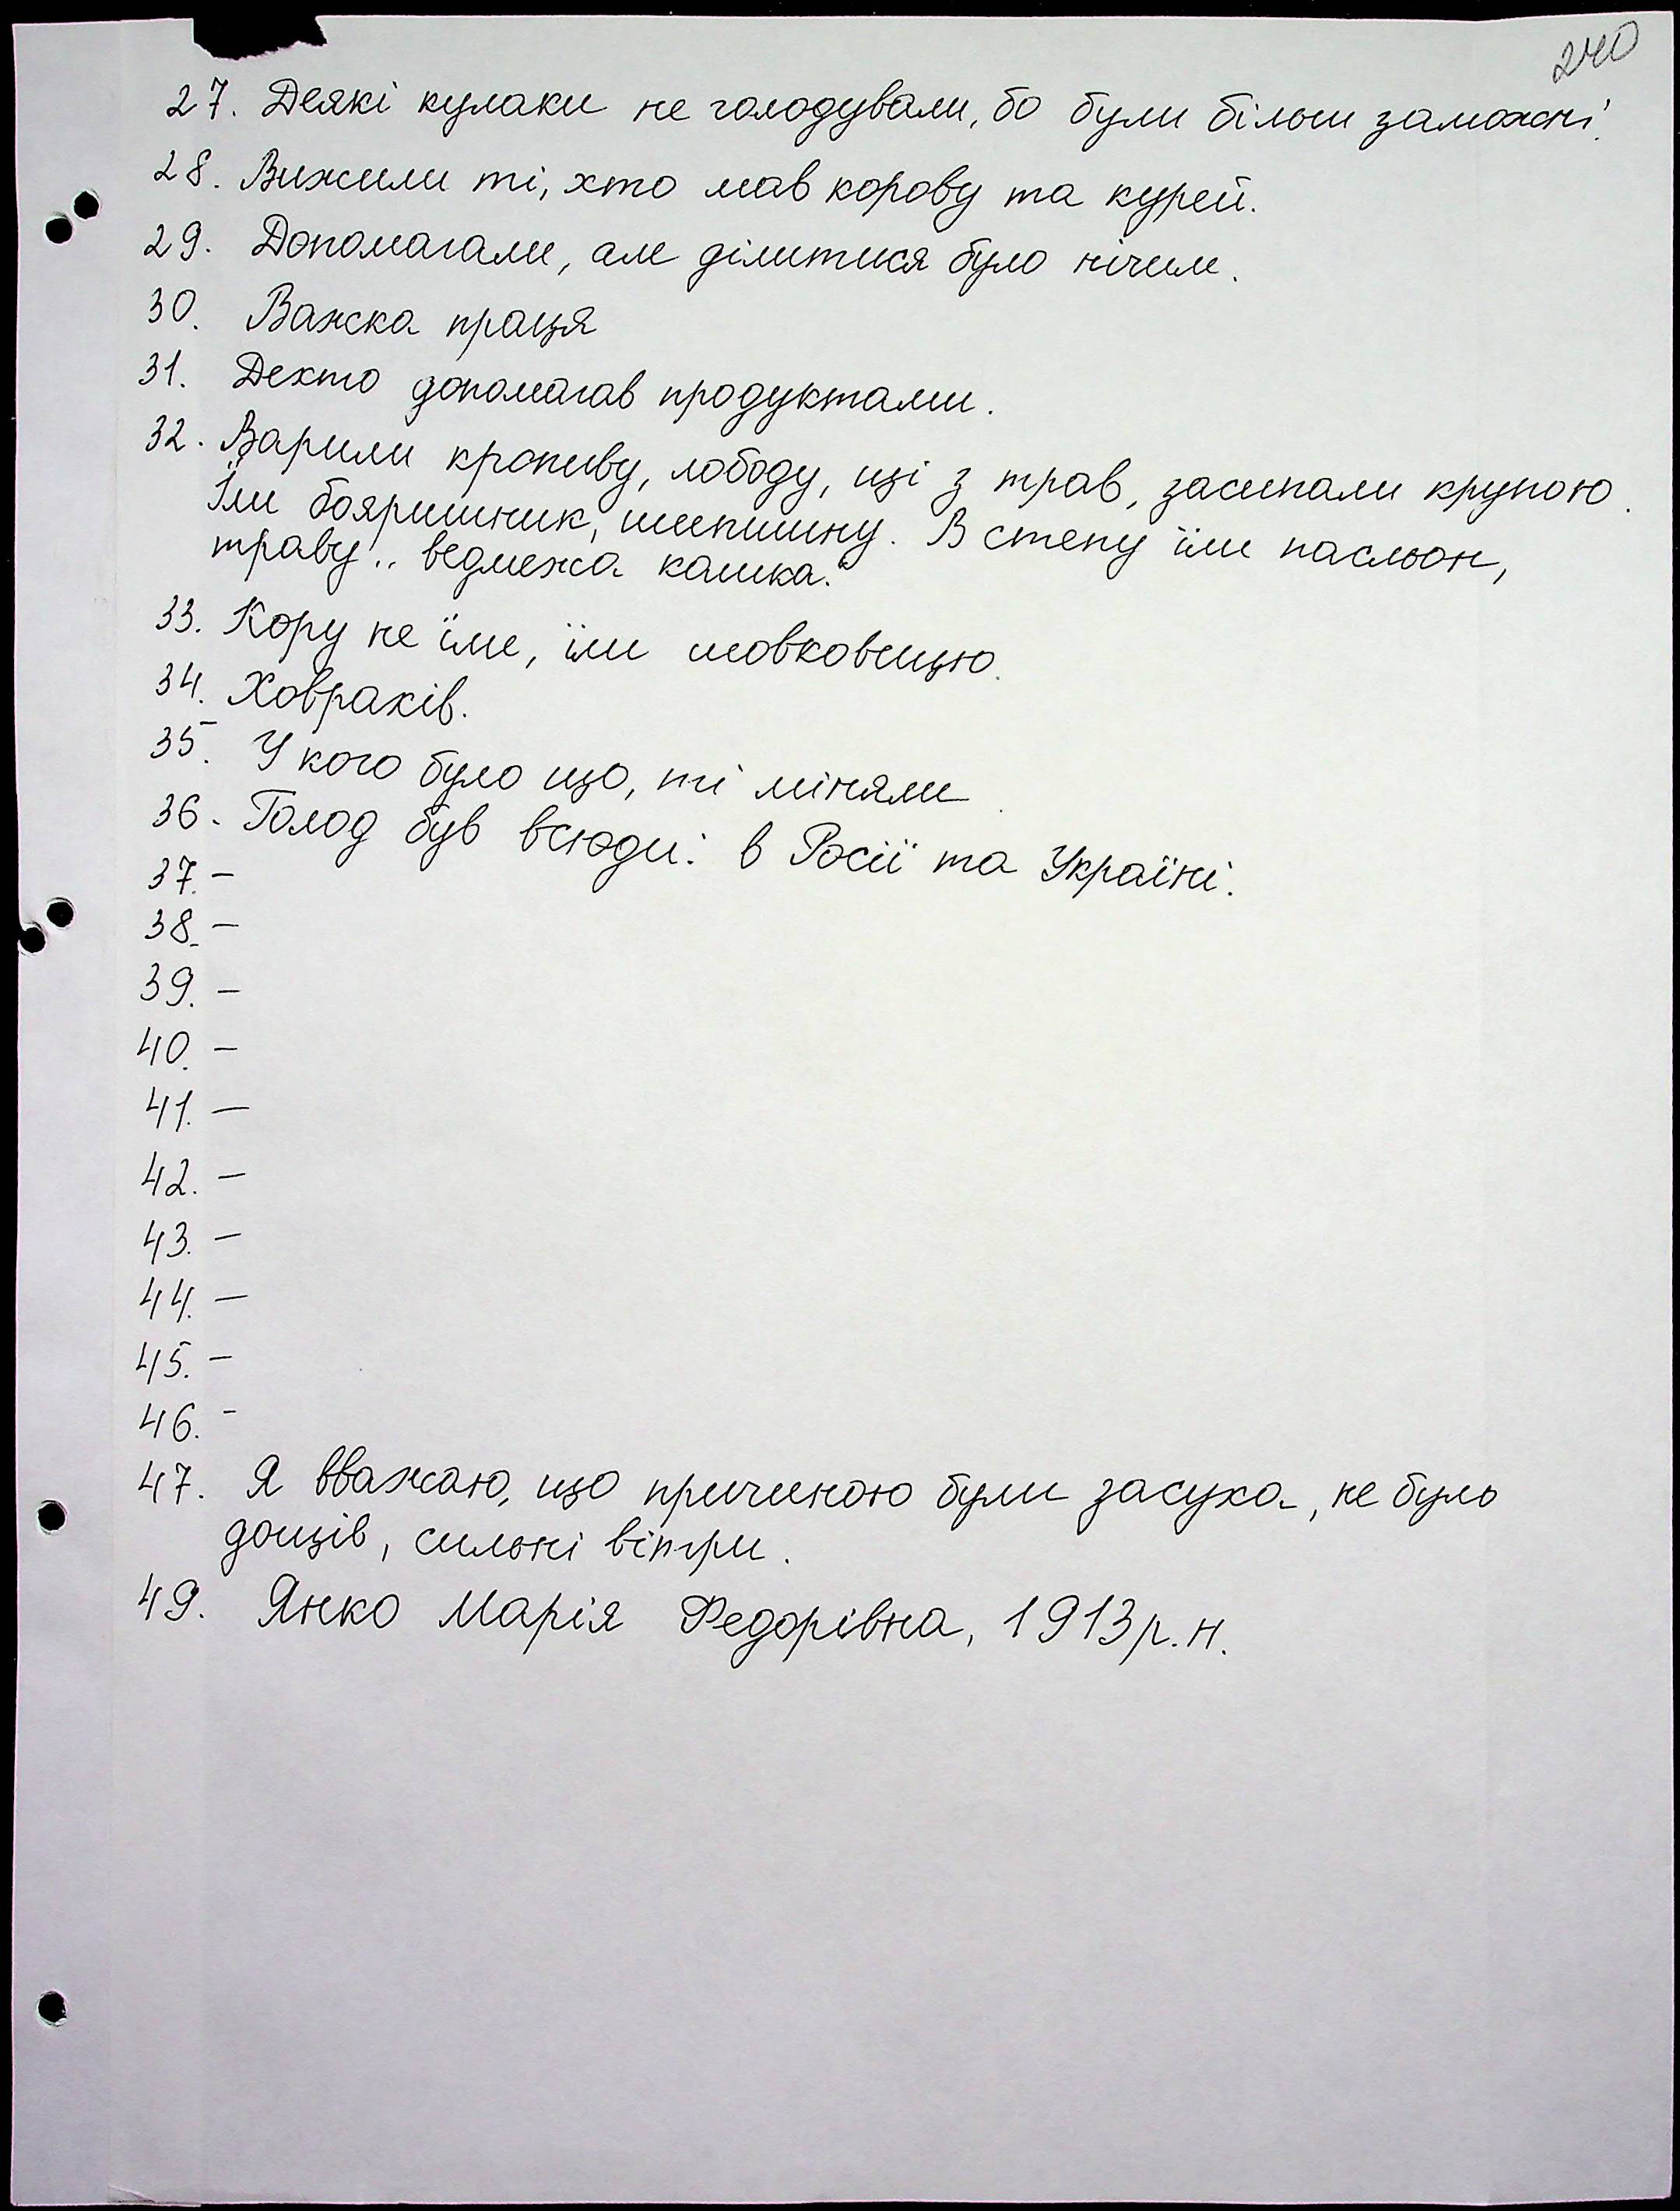 240
27. Деякі кулаки не голодували, бо були більш заможні.
28. Вижили ті, хто мав корову та курей.
29. Допомагали, але ділитися було нічим.
30. Важка праця
31. Дехто допомагав продуктами.
32. Варили кропиву, лободу, щі з трав, засипали крупою.
Їли бояришник, шипшину. В степу їли пасльон,
траву „ведмежа кашка."
33. Кору не їли, їли шовковицю.
34. Ховрахів.
35. У кого було що, ті міняли.
36. Голод був всюди: в Росії та Україні.
37. –
38. –
39. –
40. –
41. –
42. –
43. –
44. –
45. –
46. –
47. Я вважаю, що причиною були засуха, не було
дощів, сильні вітри.
49. Янко Марія Федорівна, 1913 р.н.